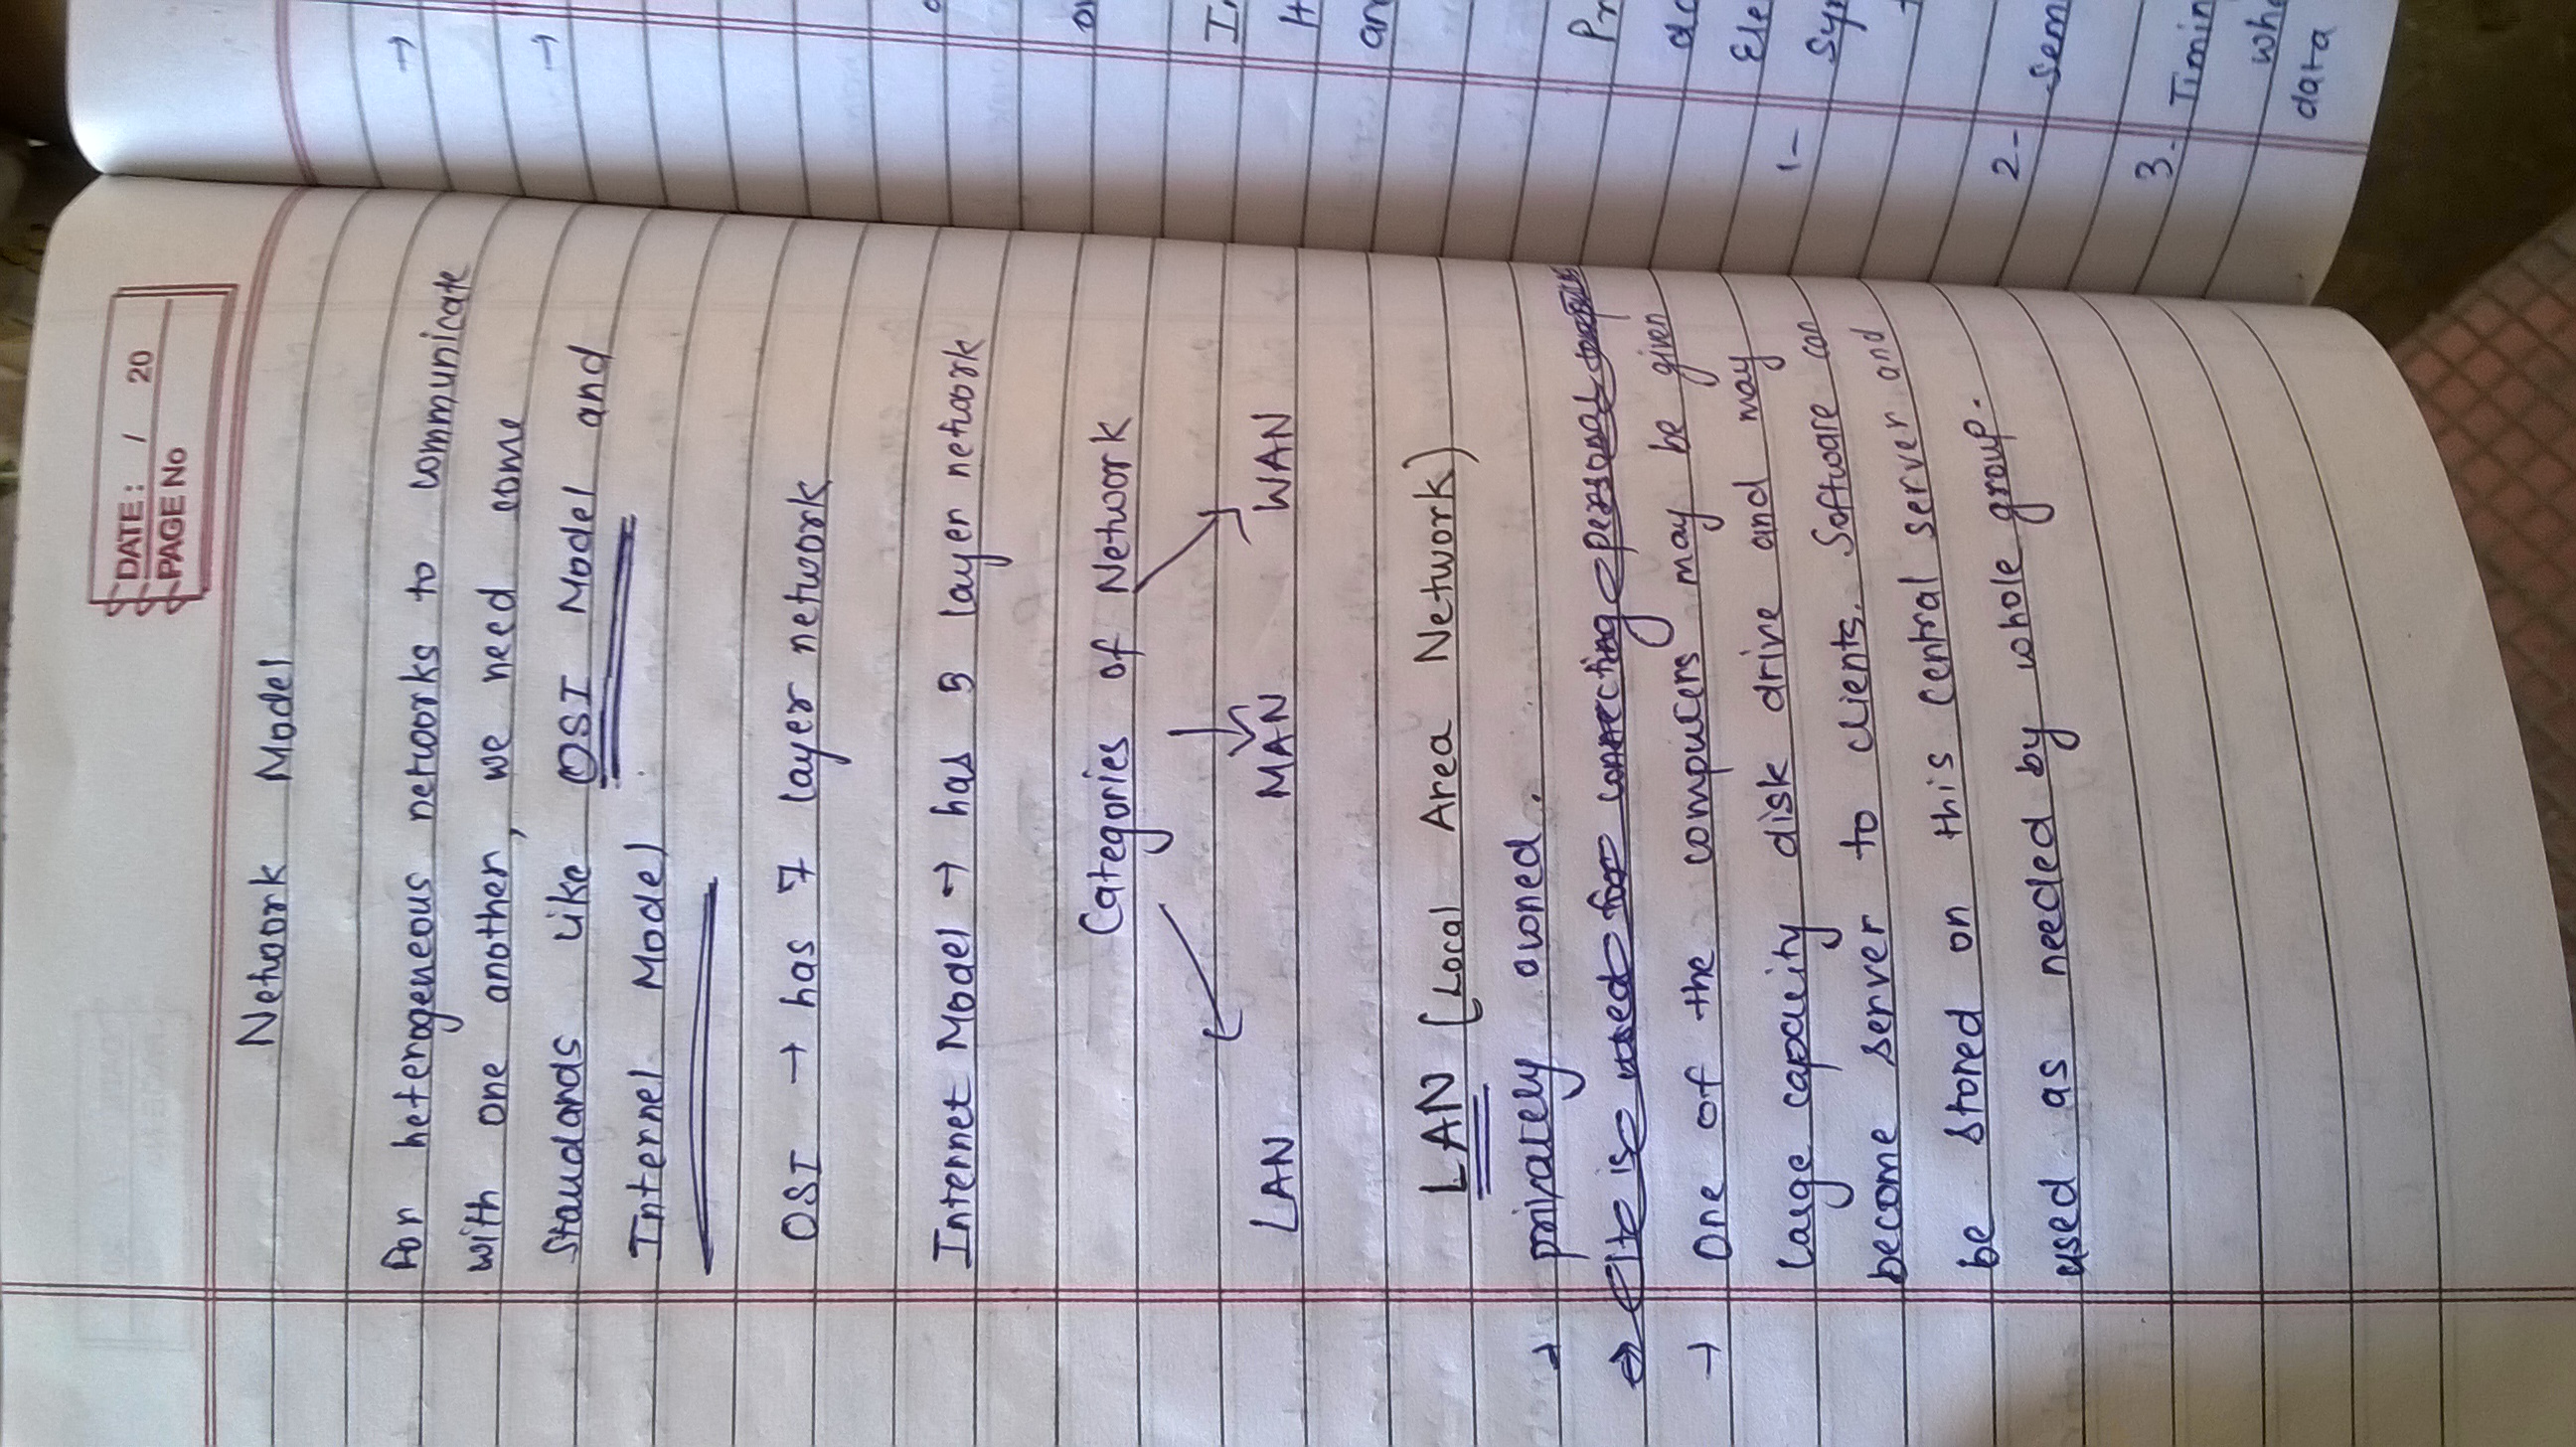 DATE: / 20
PAGE No
Network Model
For heterogeneous networks to communicate
with one another, we need some
Standards like OSI Model and
Internel Model
OSI → has 7 layer network
Internet Model → has 5 layer network
Categories of Network
LAN MAN WAN
LAN (Local Area Network)
→ privately owned.
→ It is used for connecting personal
→ One of the computers may be given
large capacity disk drive and may
become server to clients. Software can
be stored on this central server and
used as needed by whole group.
→
→
o
or
In
H
an
Pr
do
Ele
1- Syn
2-
Sem
3. Timin
whe
data